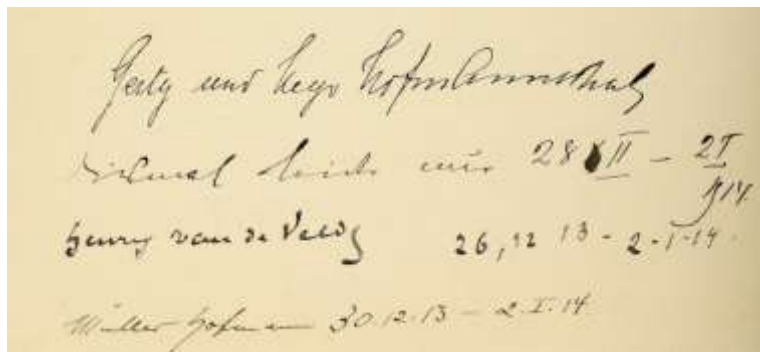 Gerty und Hugo Hofmannsthal
diesmal leider nur 28 XII – 2 I
1914.
Henry van de Velde 26,12 13 - 2-I-14.
Müller Hofmann 30.12.13 – 2.I.14.